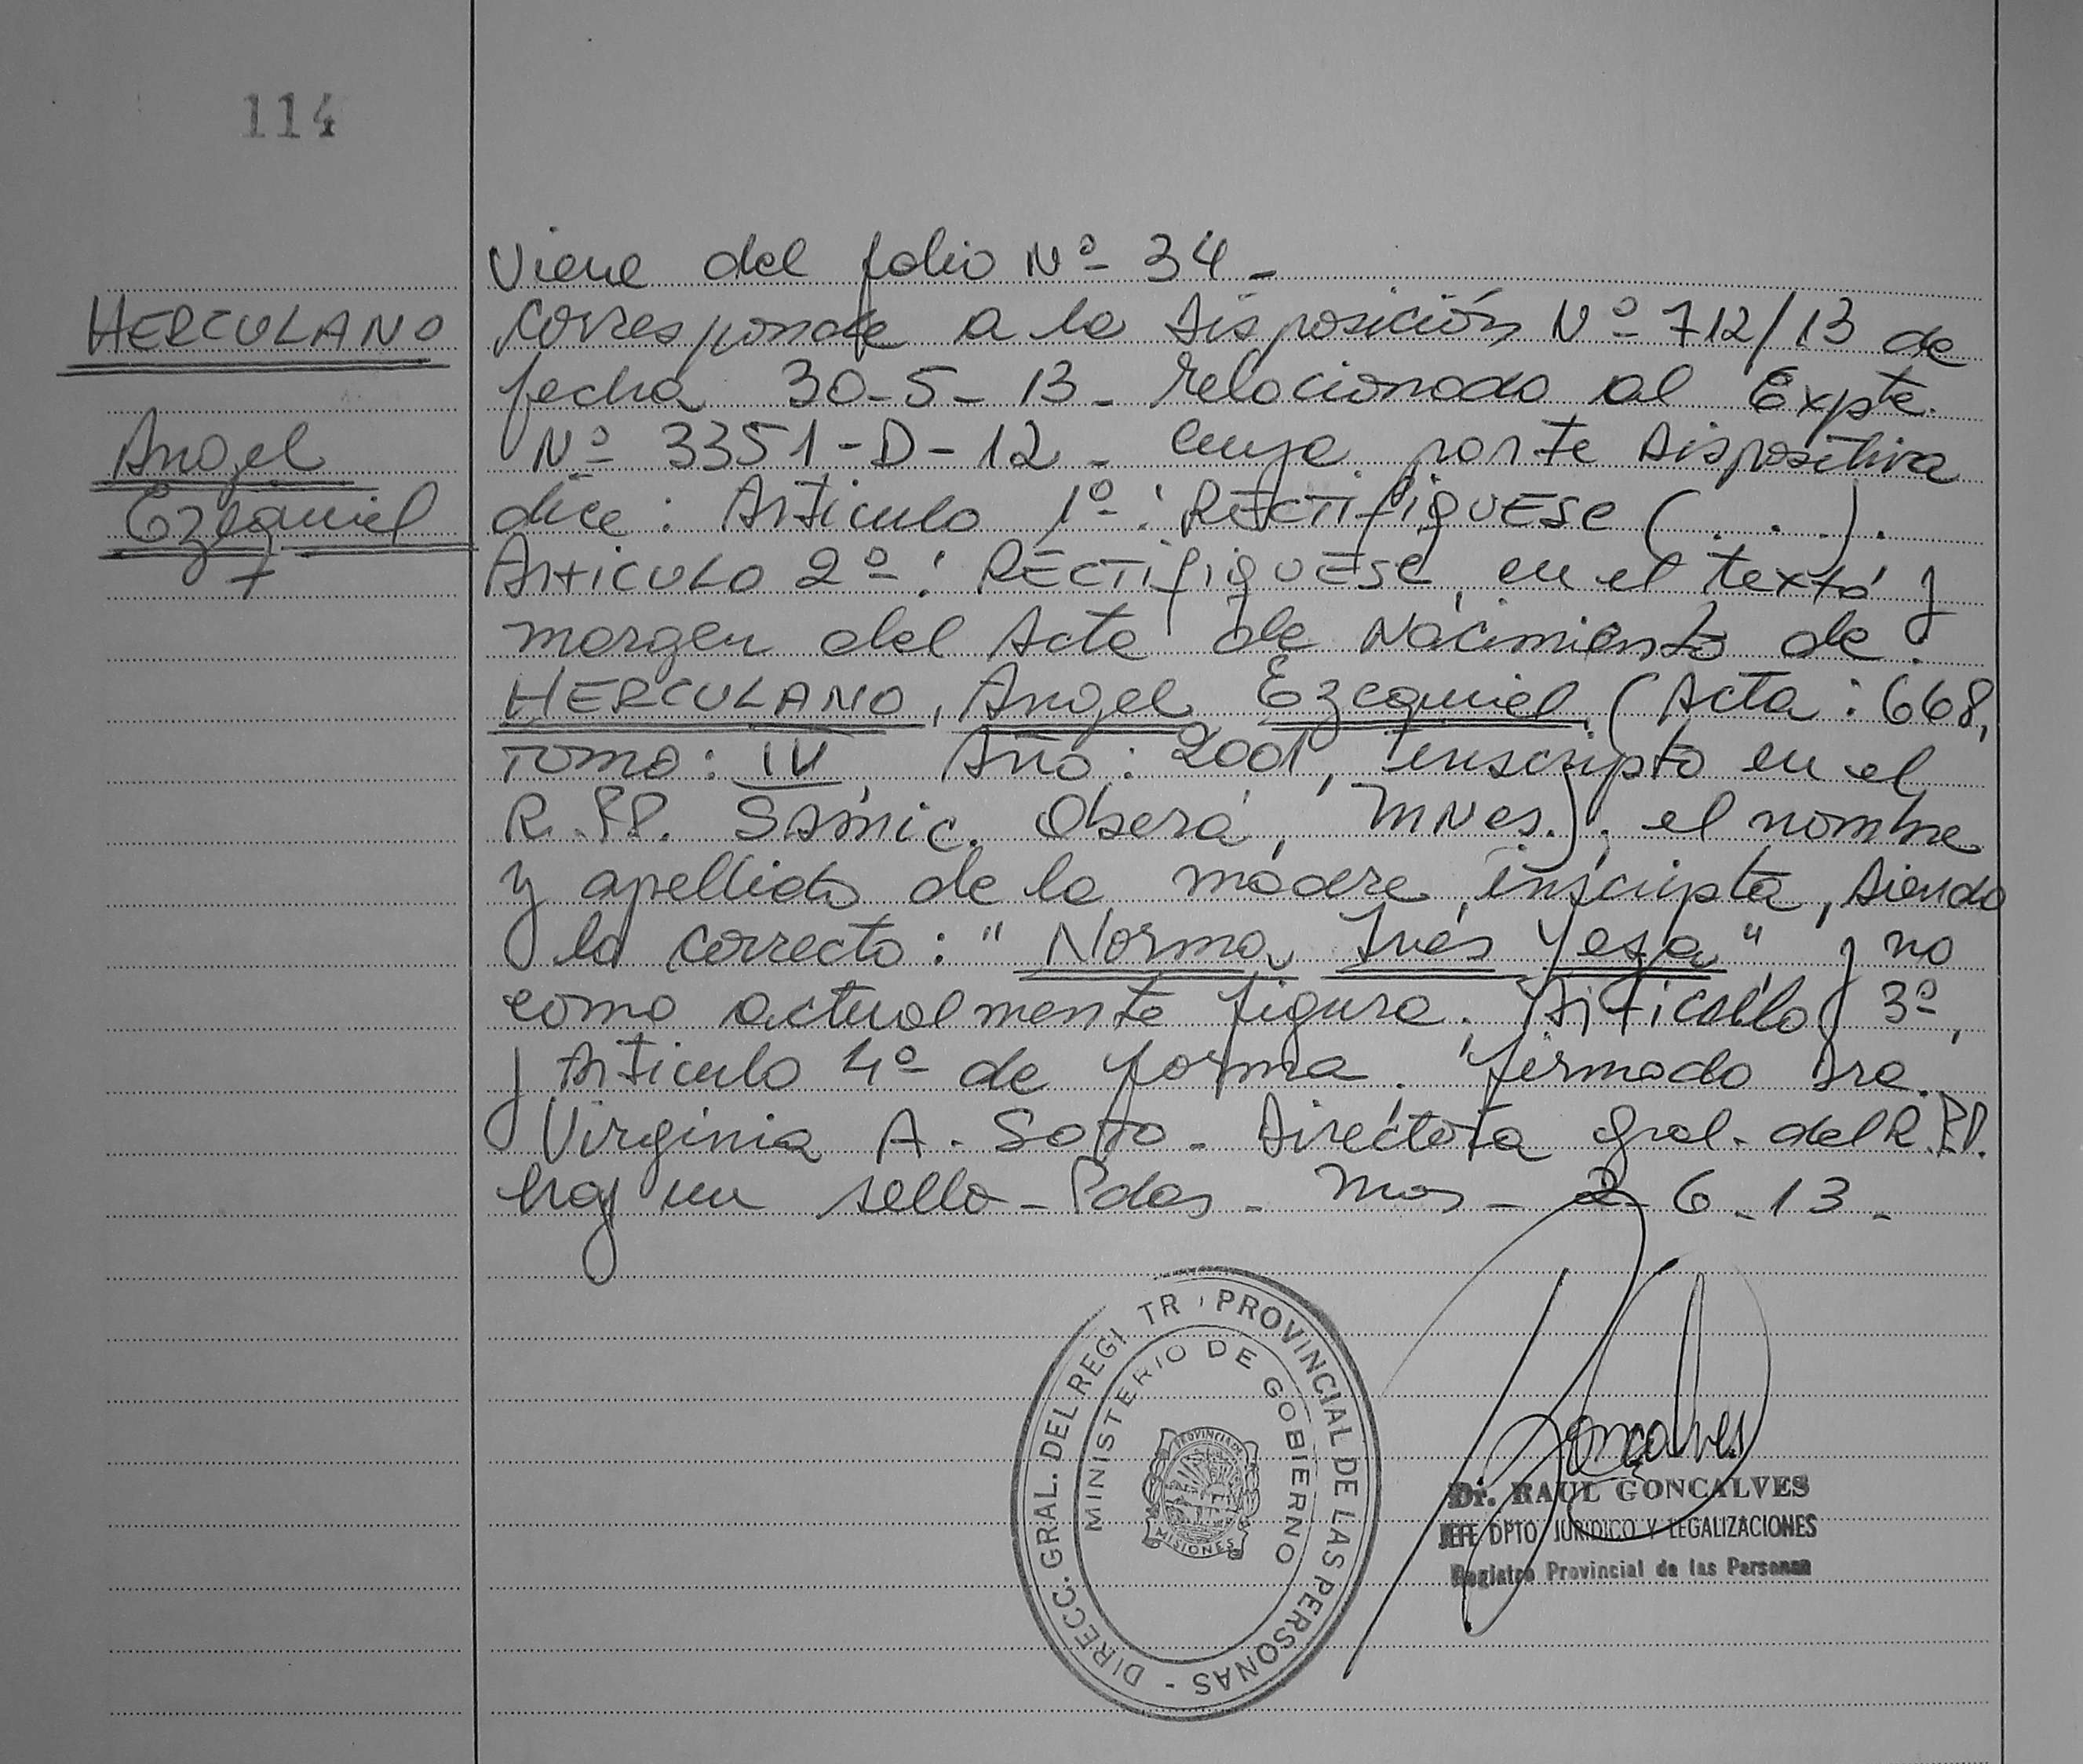 114
Viene del folio Nº 34 -
HERCULANO
Corresponde a la Disposición Nº 712/13 de
fecha 30-5-13 - relacionado al Expte.
Angel
Nº 3351-D-12 - cuya parte dispositiva
Ezequiel
dice: Articulo 1º: RECTIFIQUESE (...).
Articulo 2º: RECTIFIQUESE, en el texto y
margen del Acta de Nacimiento de:
HERCULANO, Angel Ezequiel (Acta: 668,
Tomo: IV, Año: 2001, inscripto en el
R.PP. Samic. Oberá, Mnes.), el nombre
y apellido de la madre inscripta, siendo
lo correcto: "Norma Inés Yesa" y no
como actualmente figura. Articulo 3º,
y Articulo 4º de forma. Firmado Dra.
Virginia A. Soto - Directora Gral. del R.PP.
hay un sello - Pdas - Mns - 6-13 -
DIRECC. GRAL. DEL REGI TR PROVINCIAL DE LAS PERSONAS -
MINISTERIO DE GOBIERNO
PROVINCIA DE
MISIONES
Goncalves
Dr. RAUL GONCALVES
JEFE DPTO JURIDICO Y LEGALIZACIONES
Registro Provincial de las Personas